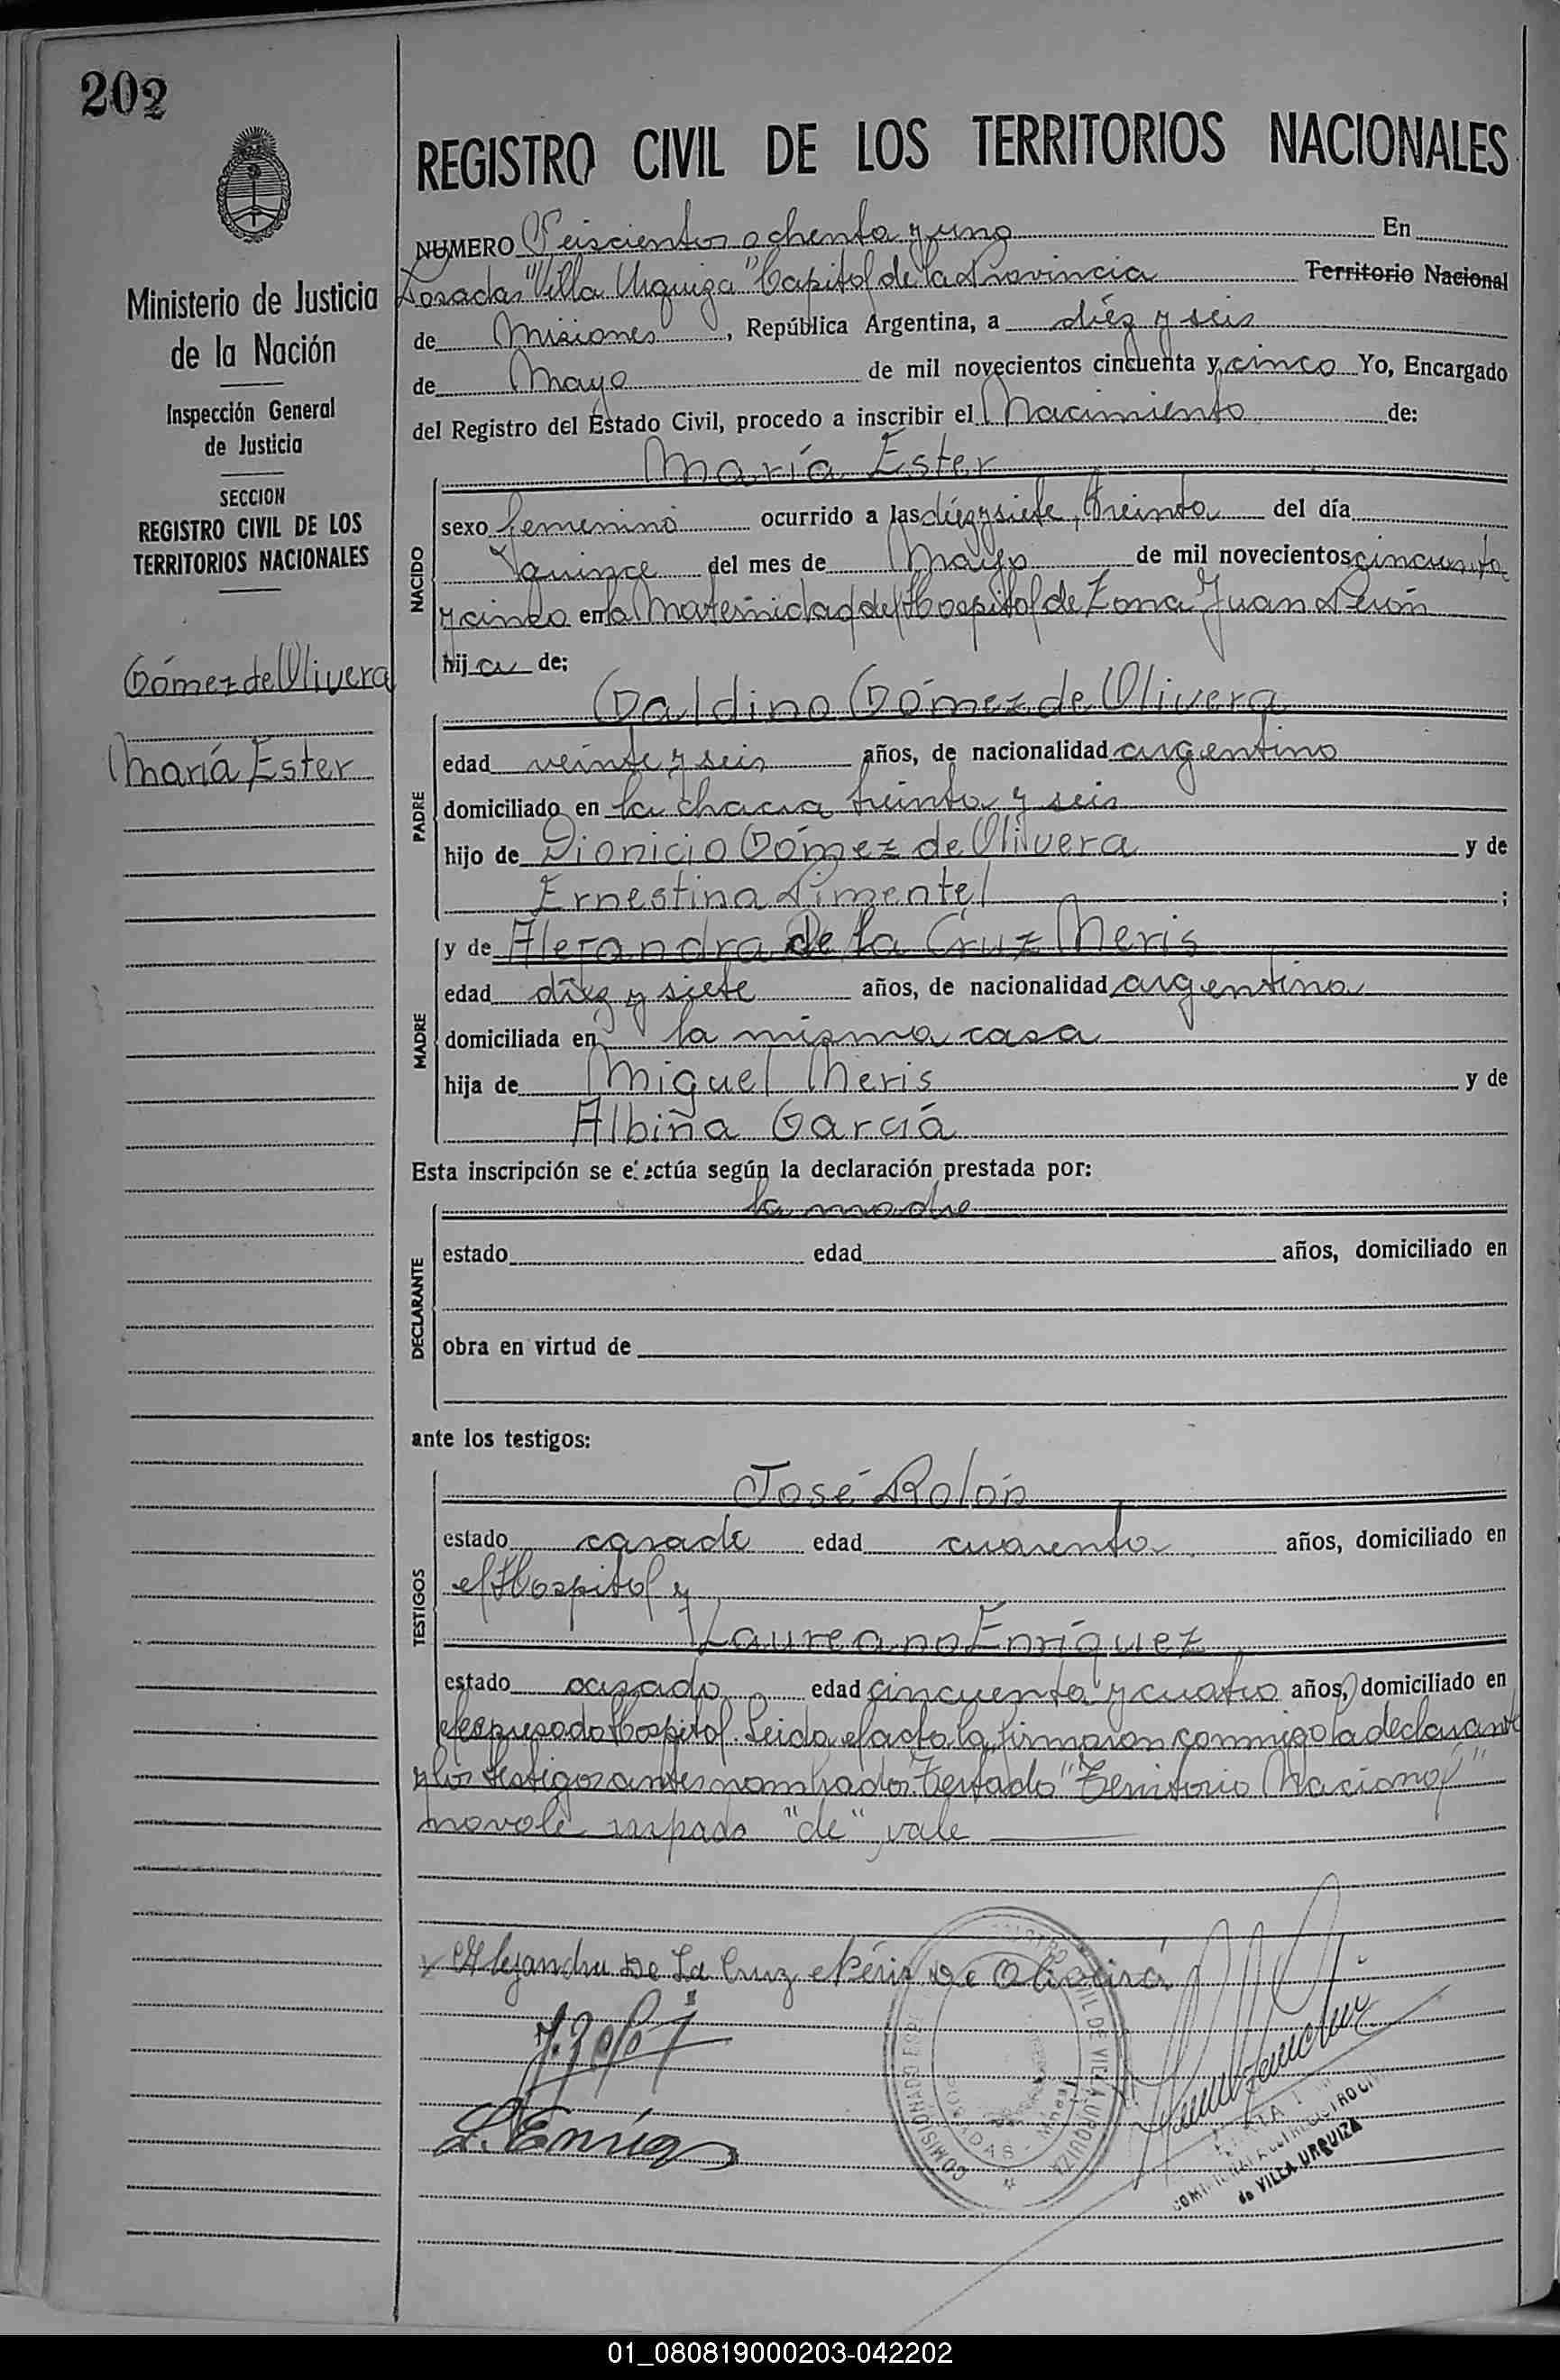 202
REGISTRO CIVIL DE LOS TERRITORIOS NACIONALES
Ministerio de Justicia
de la Nación
Inspección General
de Justicia
SECCION
REGISTRO CIVIL DE LOS
TERRITORIOS NACIONALES
Gómez de Olivera
María Ester
NUMERO Seiscientos ochenta y uno En
Posadas "Villa Urquiza" Capital de la Provincia Territorio Nacional
de Misiones, República Argentina, a diéz y seis
de Mayo de mil novecientos cincuenta y cinco Yo, Encargado
del Registro del Estado Civil, procedo a inscribir el Nacimiento de:
María Ester
NACIDO
sexo femenino ocurrido a las diéz y siete, treinta del día
quince del mes de Mayo de mil novecientos cincuenta
y cinco en la Maternidad del Hospital de Zona Juan Perón
hija de:
Galdino Gómez de Olivera
PADRE
edad veinte y seis años, de nacionalidad argentino
domiciliado en la chacra treinta y seis
hijo de Dionicio Gómez de Olivera y de
Ernestina Pimentel;
MADRE
y de Alejandra De la Cruz Neris
edad diéz y siete años, de nacionalidad argentina
domiciliada en la misma casa
hija de Miguel Neris y de
Albina García
Esta inscripción se efectúa según la declaración prestada por:
la madre
DECLARANTE
estado edad años, domiciliado en
obra en virtud de
ante los testigos:
José Rolón
TESTIGOS
estado casado edad cuarenta años, domiciliado en
el Hospital y
Laureano Enríquez
estado casado edad cincuenta y cuatro años, domiciliado en
el expresado Hospital. Leida el acta la firmaron conmigo la declarante
y los testigos antes nombrados. Testado "Territorio Nacional"
no vale raspado "de" vale
Alejandra De La Cruz Néris de Oliveira
L. Enríq
REGISTRO CIVIL DE VILLA URQUIZA
POSADAS - Mnes
COMISIONADO
REGISTRO CIVIL
de VILLA URQUIZA
01_080819000203-042202